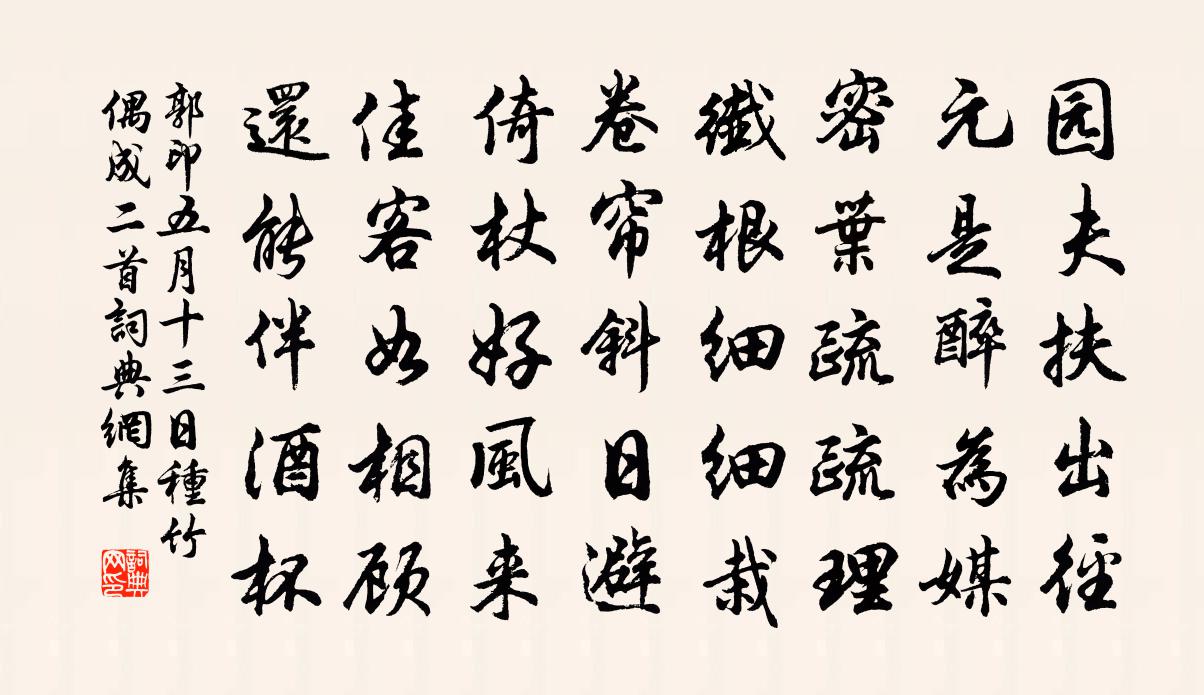 园夫扶出径
元是醉為媒
密葉疏疏理
纖根细细栽
卷帘斜日避
倚杖好風来
佳客如相顾
還能伴酒杯
郭印五月十三日種竹
偶成二首詞典網集
詞典網印